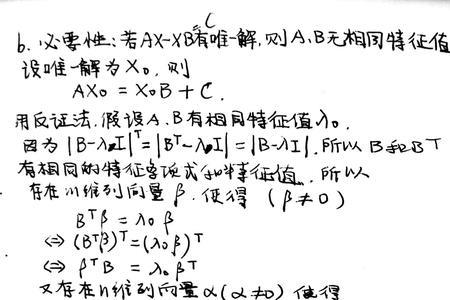 6. 必要性:若AX-XB=C有唯一解,则A、B无相同特征值
设唯一解为X₀,则
AX₀=X₀B+C.
用反证法,假设A、B有相同特征值λ₀.
因为|B-λ₀I|ᵀ=|Bᵀ-λ₀I|=|B-λ₀I|.所以B和Bᵀ
有相同的特征多项式和特征值.所以
存在n维列向量β,使得(β≠0)
Bᵀβ=λ₀β
⇔(Bᵀβ)ᵀ=(λ₀β)ᵀ
⇔βᵀB=λ₀βᵀ
又存在n维列向量α(α≠0)使得